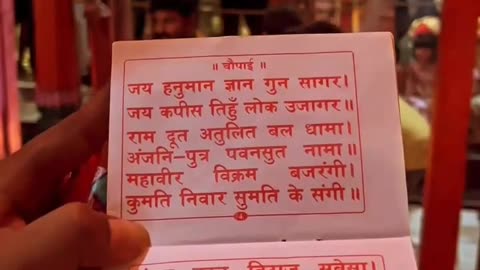 ॥ चौपाई ॥
जय हनुमान ज्ञान गुन सागर।
जय कपीस तिहुँ लोक उजागर॥
राम दूत अतुलित बल धामा।
अंजनि-पुत्र पवनसुत नामा॥
महावीर विक्रम बजरंगी।
कुमति निवार सुमति के संगी॥
4